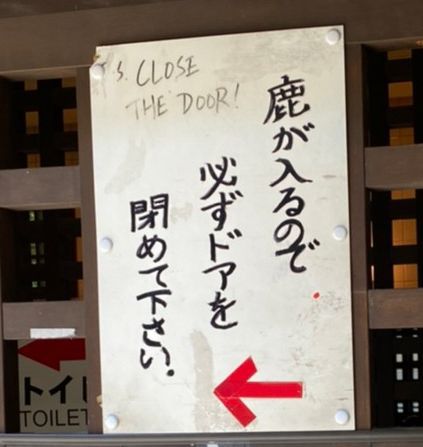 CLOSE
THE DOOR!
鹿が入るので
必ずドアを
閉めて下さい.
トイ
TOILET